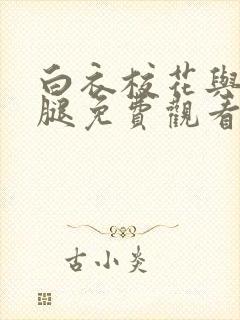 白衣校花與
腿免費觀看
古小炎